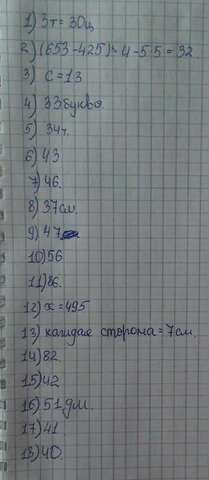 1) 3т = 30ц
2) (653-425)- 4-5 5 = 32
3) С = 13
4) 33 буква
5) 34т.
6) 43
7) 46.
8) 37см
9) 47
10) 56
11) 86.
12) х = 495
13) каждая сторона = 7см.
14) 82
15) 42
16) 51 дм.
17) 41
18) 40.